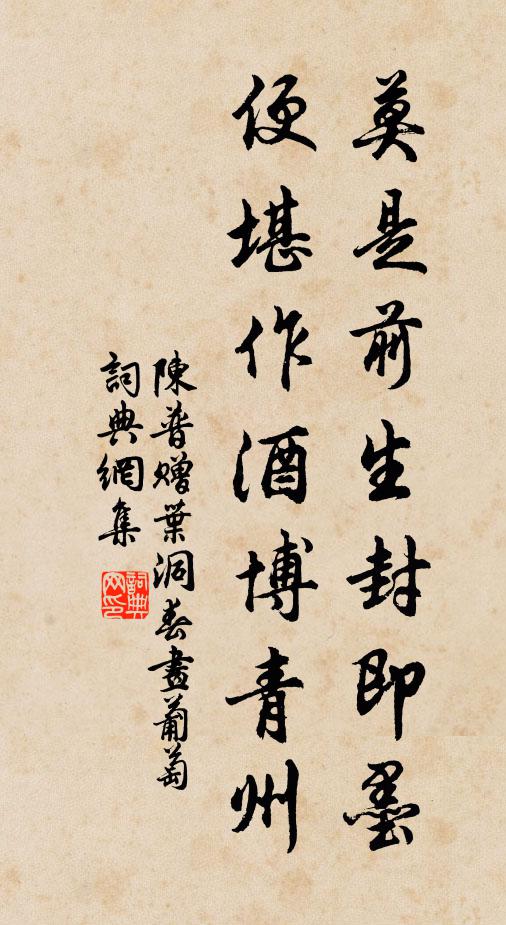 莫是前生封即墨
便堪作酒博青州
陳普贈葉洞春畫葡萄
詞典網集
詞典網印